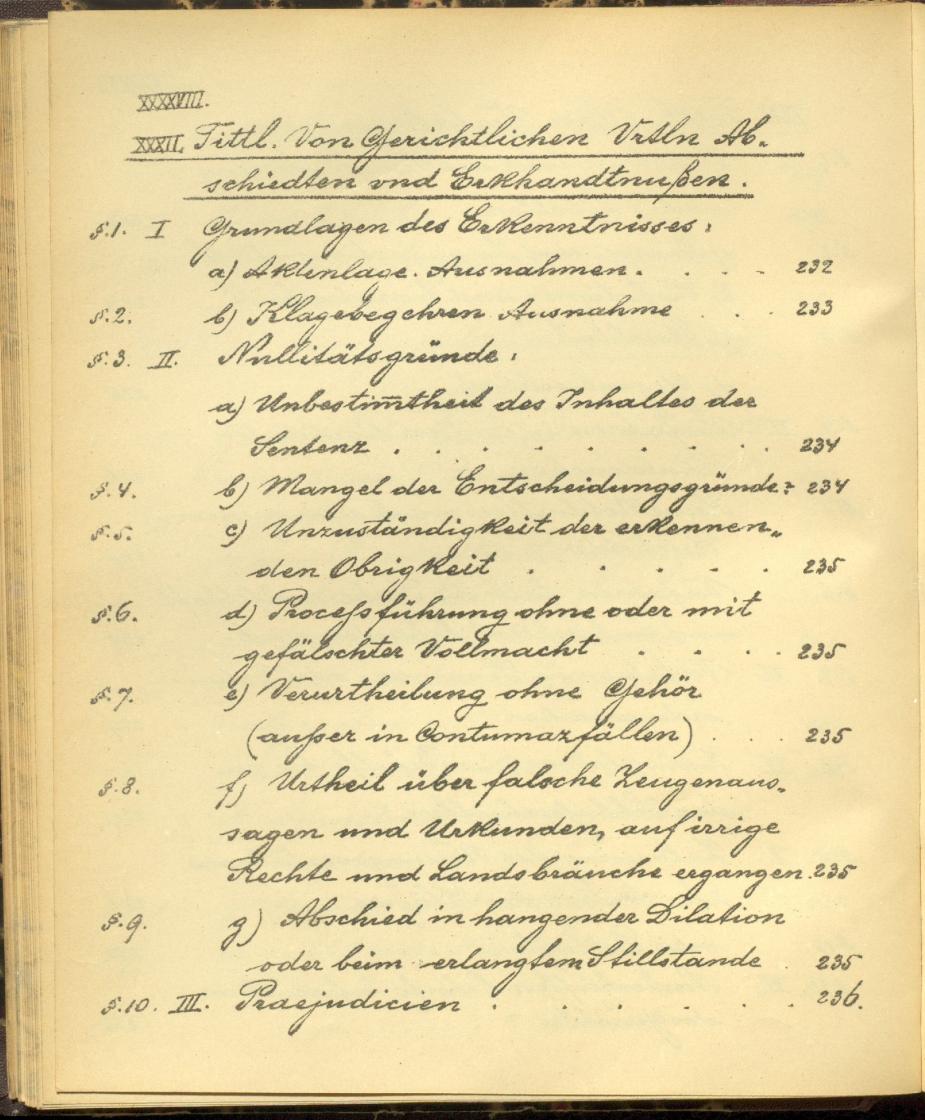 XXXXVIII.
XXXII. Tittl. Von Gerichtlichen Vrtln Ab-
schiedten vnd Erkhandtnußen.
§.1. I Grundlagen des Erkenntnisses:
a) Aktenlage. Ausnahmen. . . . 232
§.2. b) Klagebegehren Ausnahme . . . 233
§.3. II. Nullitätsgründe:
a) Unbestim̅theit des Inhaltes der
Sentenz . . . . . . . . . 234
§.4. b) Mangel der Entscheidungsgründe: 234
§.5. c) Unzuständigkeit der erkennen-
den Obrigkeit . . . . . 235
§.6. d) Proceßführung ohne oder mit
gefälschter Vollmacht . . . . 235
§.7. e) Verurtheilung ohne Gehör
(außer in Contumazfällen) . . . 235
§.8. f) Urtheil über falsche Zeugenaus-
sagen und Urkunden, auf irrige
Rechte und Landsbräuche ergangen. 235
§.9. g) Abschied in hangender Dilation
oder beim erlangtem Stillstande . 235
§.10. III. Praejudicien . . . . . . . 236.